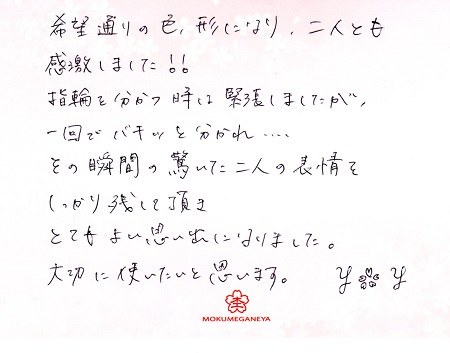 希望通りの色、形になり、二人とも
感激しました!!
指輪を分かつ時は緊張しましたが、
一回でバキッと分かれ....
その瞬間の驚いた二人の表情を
しっかり残して頂き
とてもよい思い出になりました。
大切に使いたいと思います。 Y Y
MOKUMEGANEYA